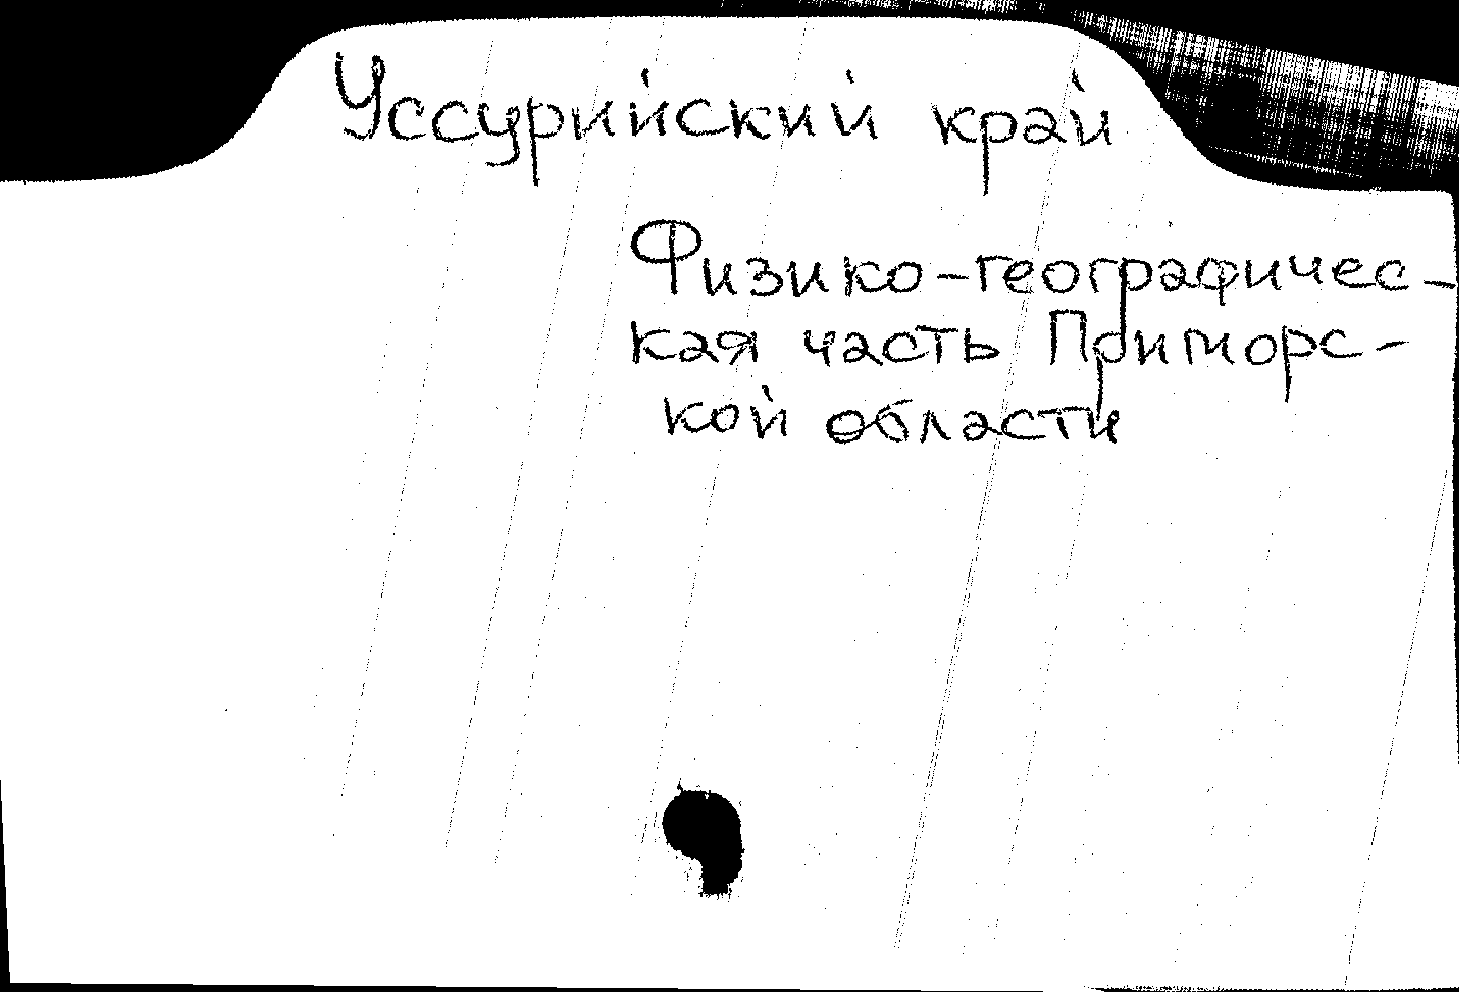 Уссурийский край
Физико-географичес-
кая часть Приморс-
кой области